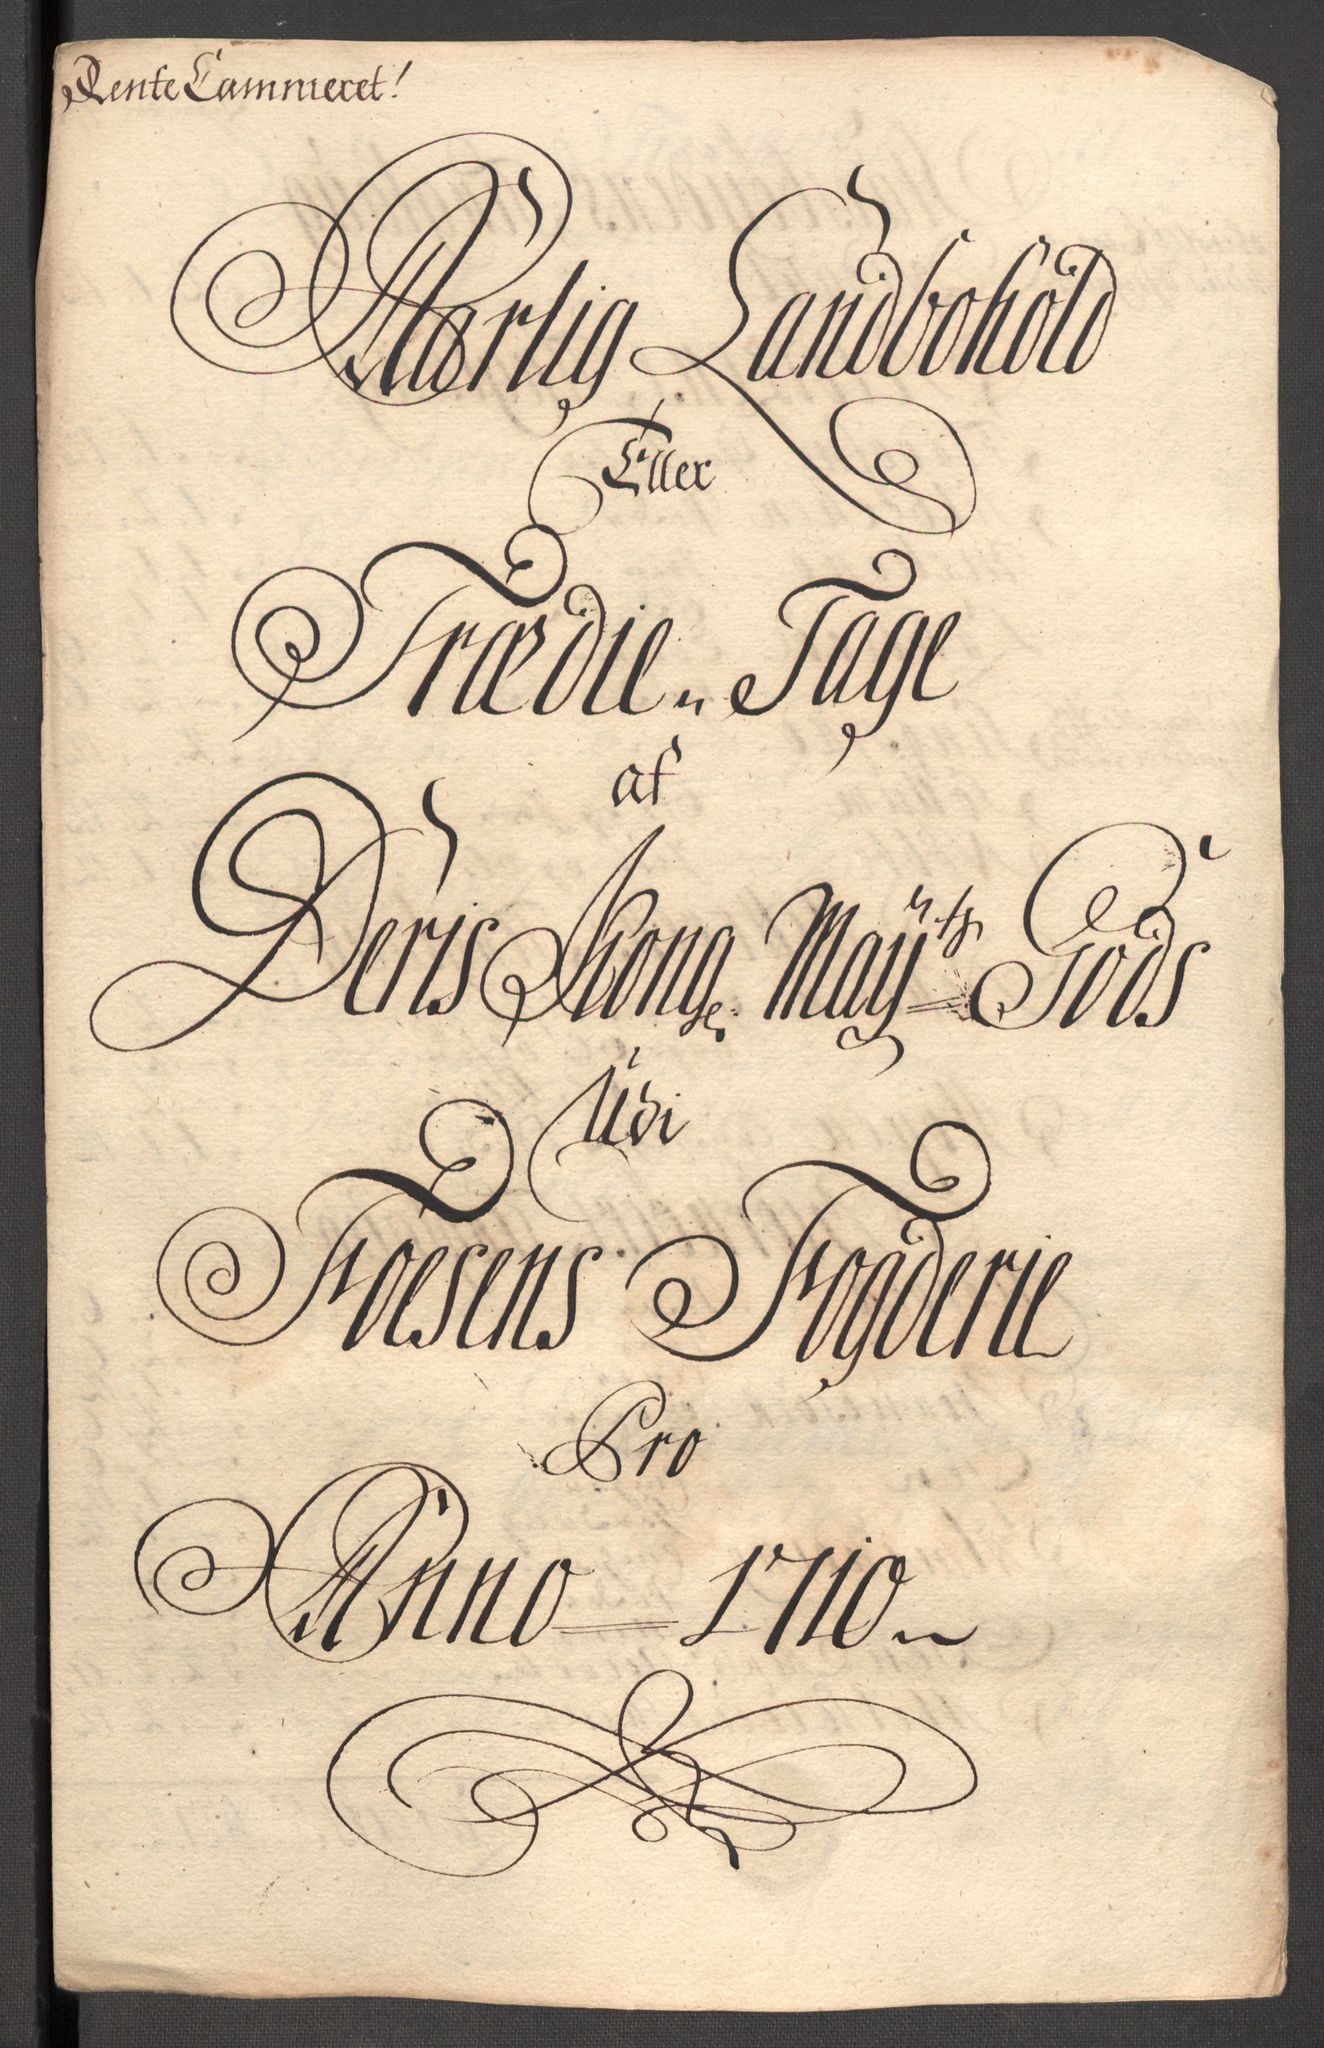 Rente Cammeret!
Aarlig Landbohold
Eller
Trædie Tage
af
Deris Kong: May:ts Gods
Udi
Foesens Fogderie
Pro
Anno 1710